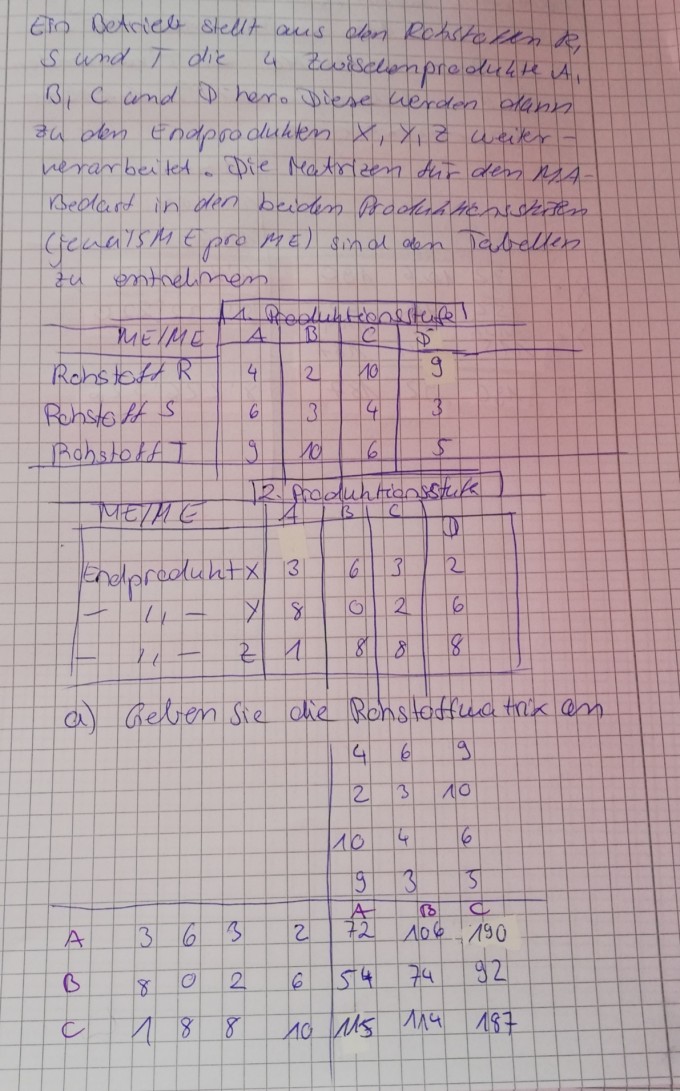 Ein Betrieb stellt aus den Rohstoffen R,
S und T die 4 Zwischenprodukte A,
B, C und D her. Diese werden dann
zu den Endprodukten X, Y, Z weiter-
verarbeitet. Die Matrizen für den MA-
Bedarf in den beiden Produktionsstufen
(jeweils ME pro ME) sind den Tabellen
zu entnehmen
1. Produktionsstufe
ME/ME A B C D
Rohstoff R 4 2 10 9
Rohstoff S 6 3 4 3
Rohstoff T 9 10 6 5
2. Produktionsstufe
ME/ME A B C D
Endprodukt X 3 6 3 2
— ,, — Y 8 0 2 6
— ,, — Z 1 8 8 8
a) Geben Sie die Rohstoffmatrix an
4 6 9
2 3 10
10 4 6
9 3 5
A B C
A 3 6 3 2 72 106 190
B 8 0 2 6 54 74 92
C 1 8 8 10 115 114 187